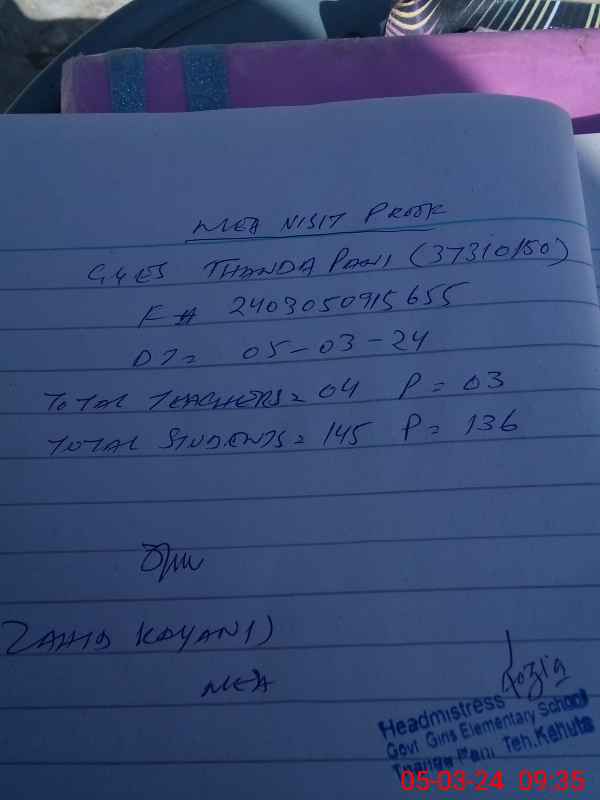 MEA VISIT PROOF
GGES THANDA PANI (37310150)
F # 2403050915655
DT = 05-03-24
TOTAL TEACHERS = 04 P = 03
TOTAL STUDENTS = 145 P = 136
ZAHID KAYANI)
MEA
Fozia
Headmistress
Govt Girls Elementary School
Thanda Pani Teh.Kahuta
05-03-24 09:35